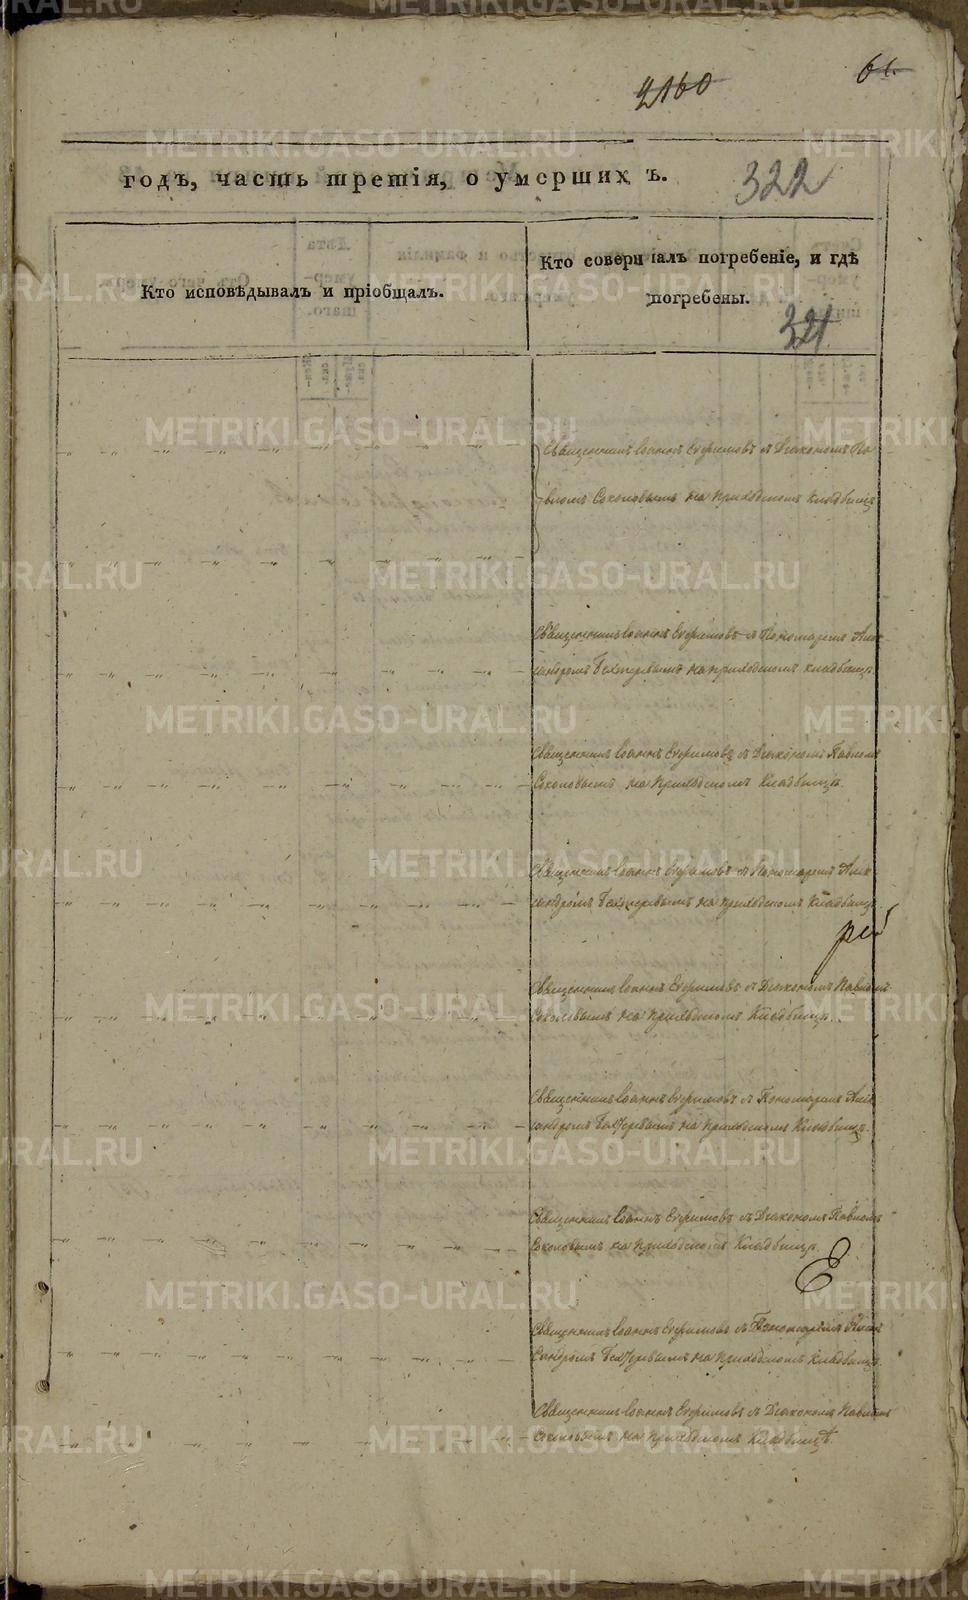 2160
61.
годъ, часть третія, о умершихъ.
322
Кто исповѣдывалъ и пріобщалъ.
Кто совершалъ погребеніе, и гдѣ
погребены.
321
Священникъ Іоаннъ Ефимовъ съ Діакономъ Па
вломъ Соколовымъ на приходскомъ кладбищѣ
Священникъ Іоаннъ Ефимовъ съ Пономаремъ Алек
сандромъ Бехтеревымъ на приходскомъ кладбищѣ.
Священникъ Іоаннъ Ефимовъ съ Діакономъ Павломъ
Соколовымъ на приходскомъ кладбищѣ.
Священникъ Іоаннъ Ефимовъ съ Пономаремъ Алек
сандромъ Бехтеревымъ на приходскомъ кладбищѣ.
Священникъ Іоаннъ Ефимовъ съ Діакономъ Павломъ
Соколовымъ на приходскомъ кладбищѣ.
Священникъ Іоаннъ Ефимовъ съ Пономаремъ Алек
сандромъ Бехтеревымъ на приходскомъ кладбищѣ.
Священникъ Іоаннъ Ефимовъ съ Діакономъ Павломъ
Соколовымъ на приходскомъ кладбищѣ.
Священникъ Іоаннъ Ефимовъ съ Пономаремъ Алек
сандромъ Бехтеревымъ на приходскомъ кладбищѣ.
Священникъ Іоаннъ Ефимовъ съ Діакономъ Павломъ
Соколовымъ на приходскомъ кладбищѣ.
METRIKI.GASO-URAL.RU